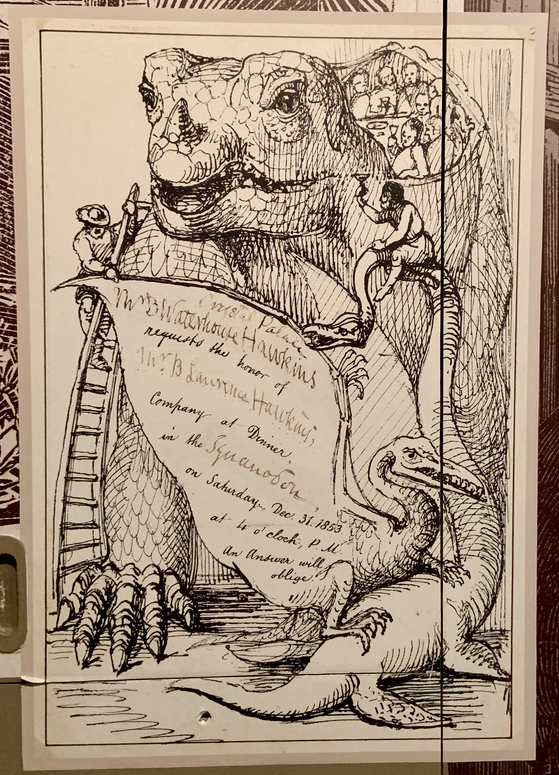 Crystal Palace
Mr B Waterhouse Hawkins
requests the honor of
Mr B Lawrence Hawkins,
Company at Dinner
in the Iguanodon
on Saturday Dec 31. 1853
at 4 o'clock, P.M.
An Answer will
oblige